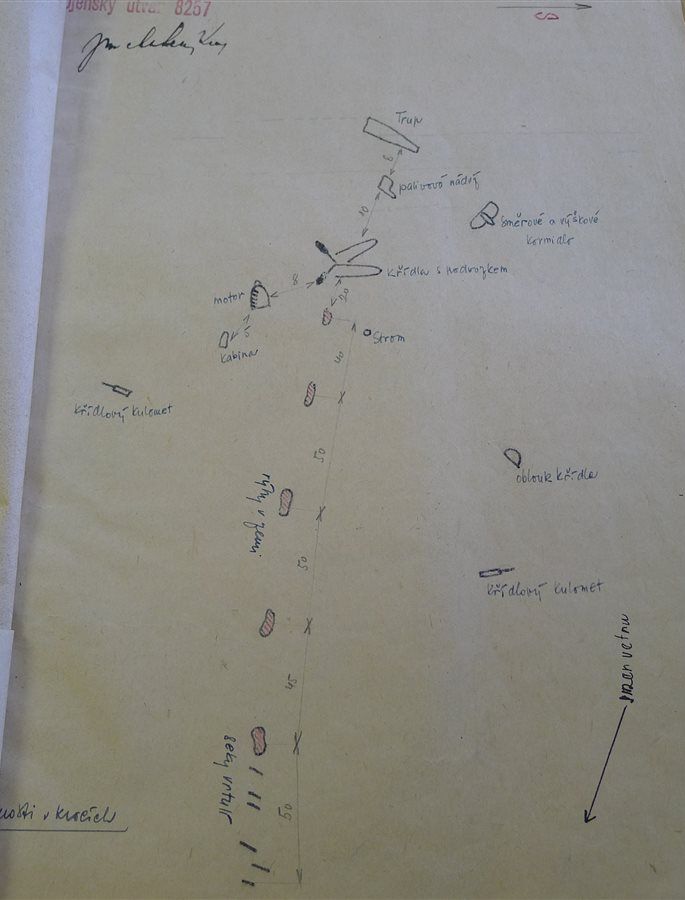 útvar 8267
S
Trup
8
palivová nádrž
10
směrové a výškové
kormidlo
křídla s podvozkem
motor
8
20
5
kabina
strom
40
křídlový kulomet
50
oblouk křídla
rýhy v zemi
50
křídlový kulomet
45
směr větru
seky vrtule
50
v krocích